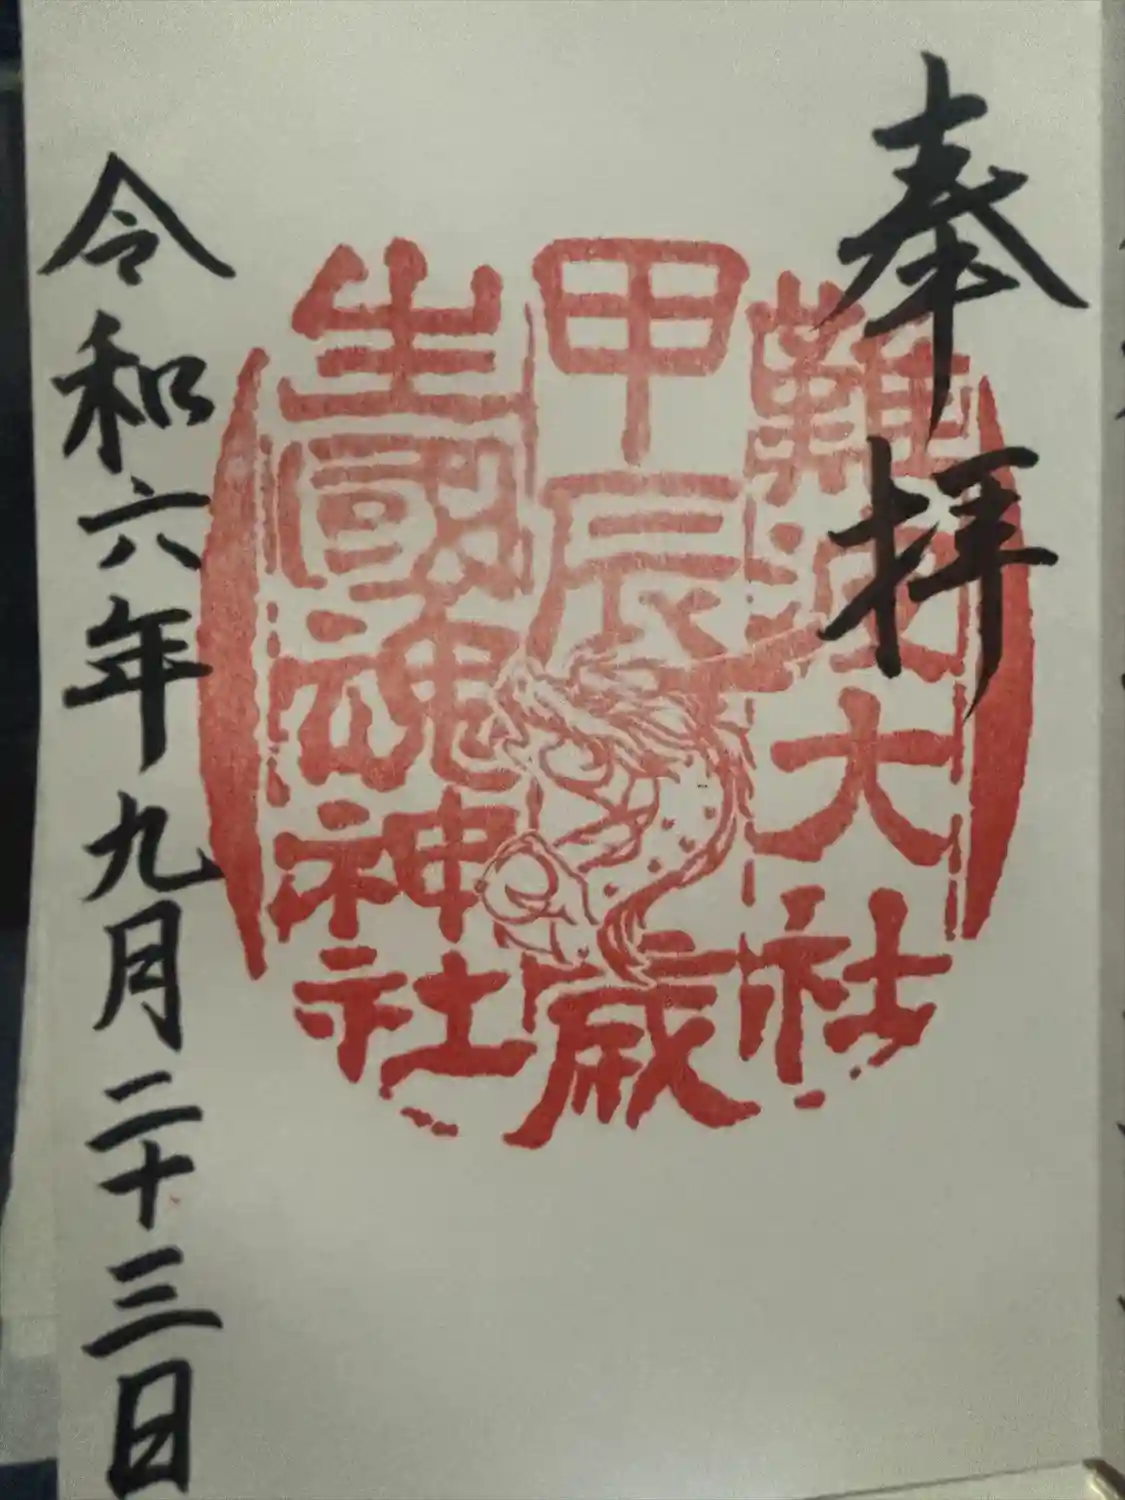 奉拝
難波大社
甲辰歳
生國魂神社
令和六年九月二十三日